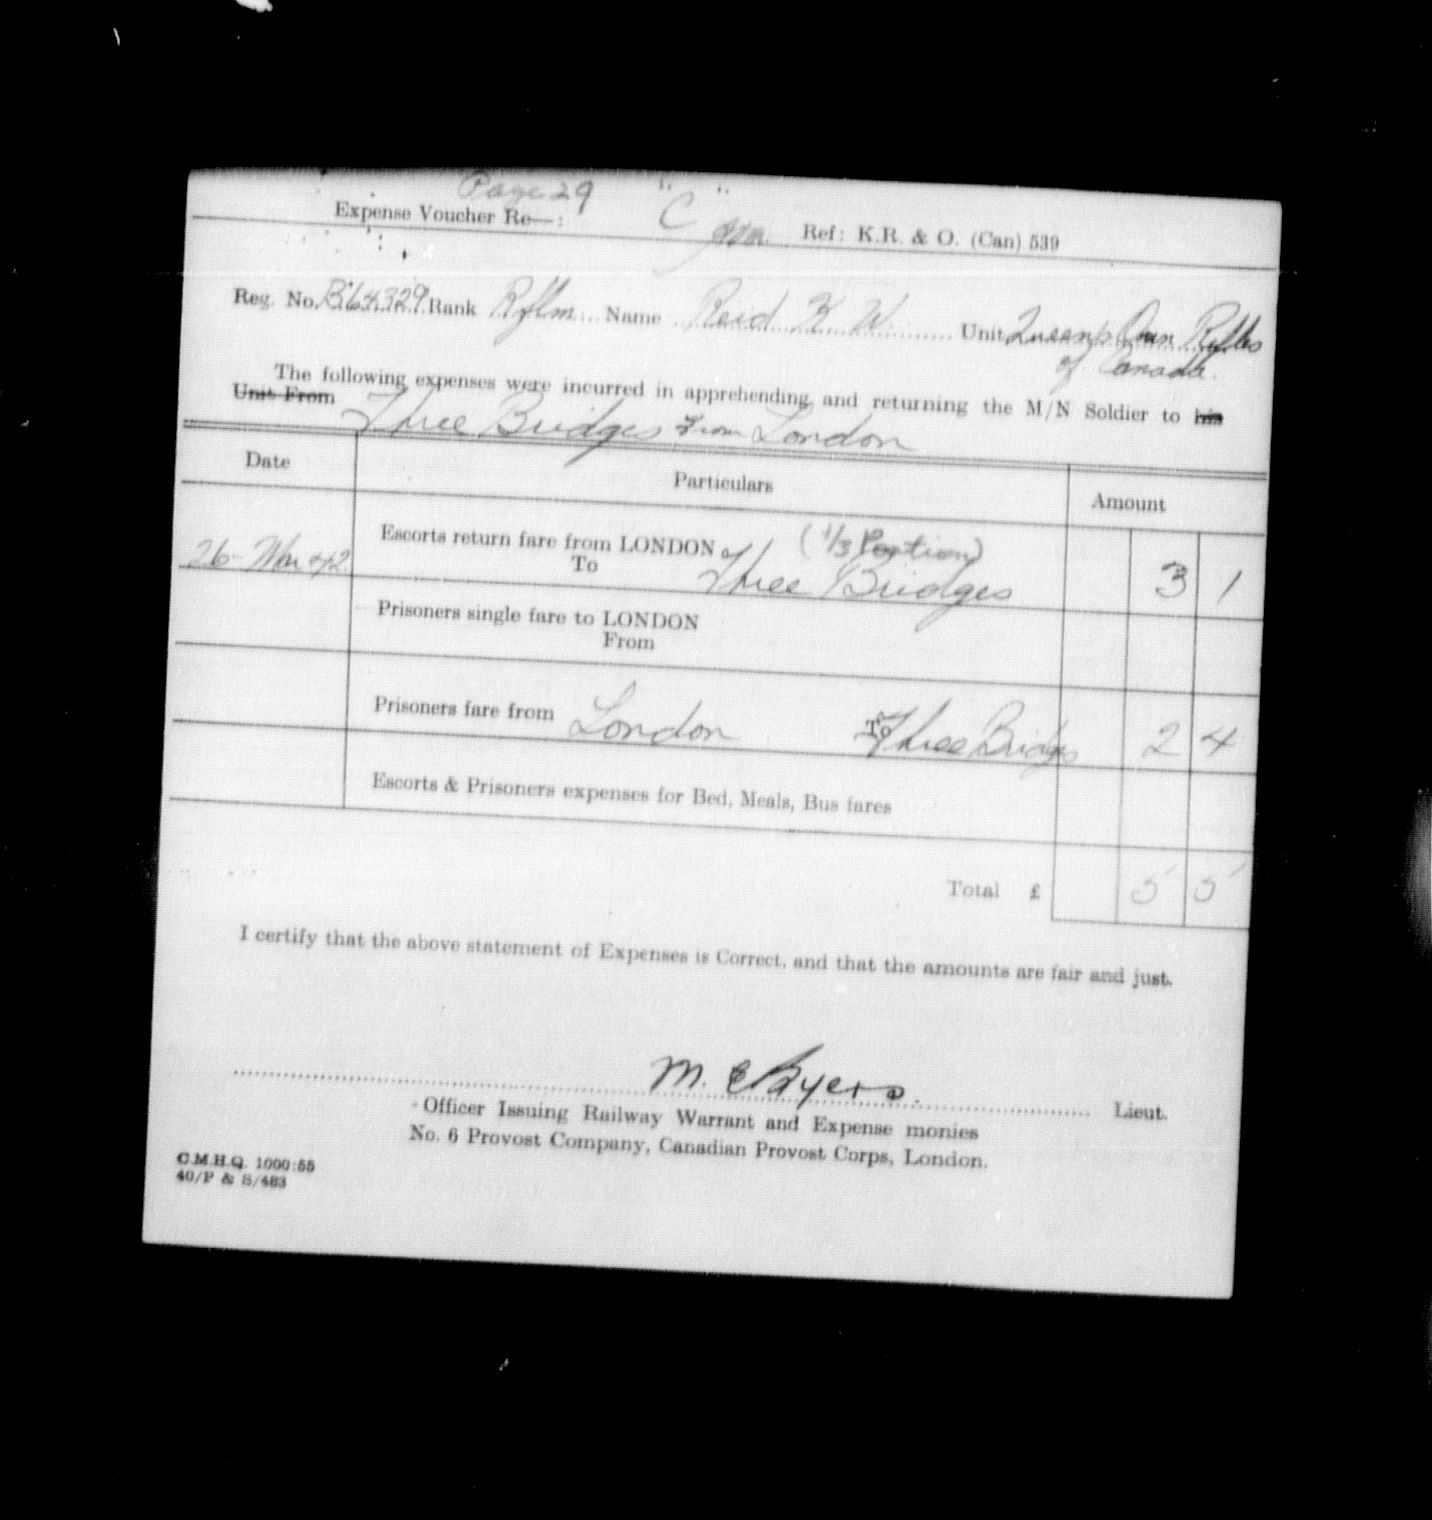 Page 29 "C"
Expense Voucher Re—: Ref: K.R. & O. (Can) 539
Reg. No. B64329 Rank Rflm Name Reid K W Unit Queen's Own Rifles
of Canada.
The following expenses were incurred in apprehending and returning the M/N Soldier to his
Unit From Three Bridges From London
Date Particulars Amount
Escorts return fare from LONDON (1/3 Portion)
26 Mar 42 To Three Bridges 3 1
Prisoners single fare to LONDON
From
Prisoners fare from London To Three Bridges 2 4
Escorts & Prisoners expenses for Bed, Meals, Bus fares
Total £ 5 5
I certify that the above statement of Expenses is Correct, and that the amounts are fair and just.
M. E Byers. Lieut.
Officer Issuing Railway Warrant and Expense monies
No. 6 Provost Company, Canadian Provost Corps, London.
C.M.H.Q. 1000:55
40/P & S/483